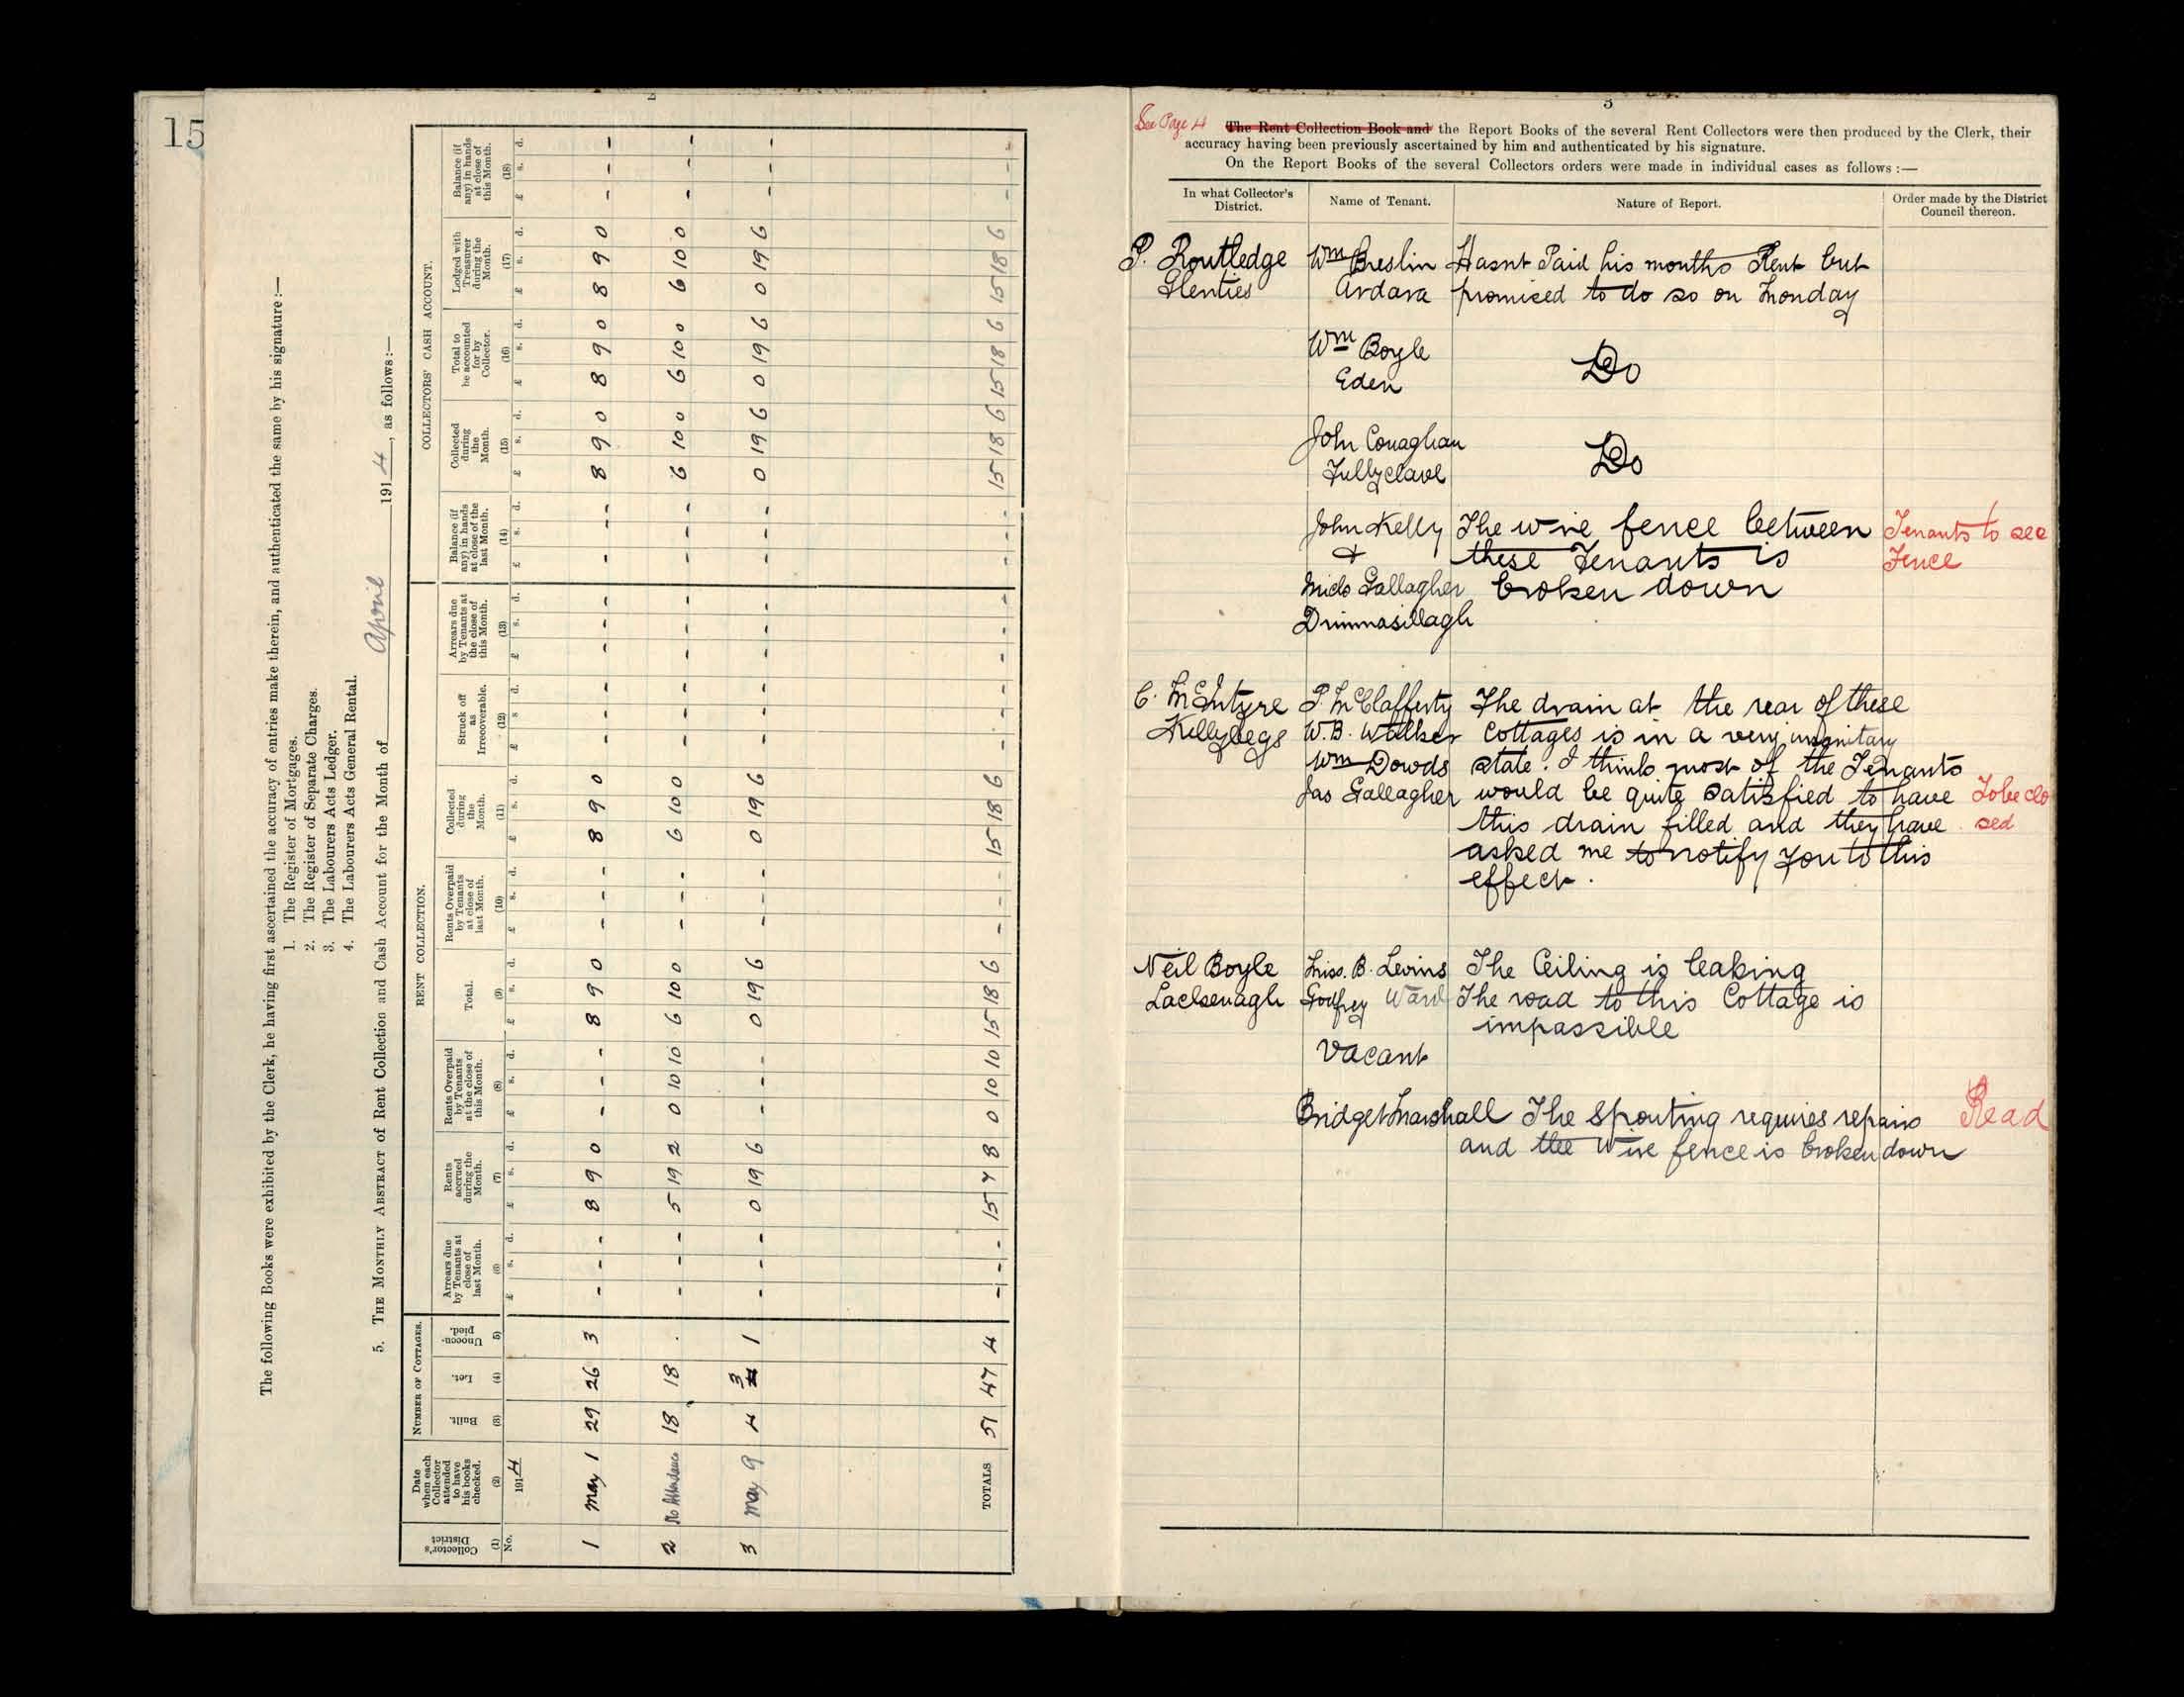 15
2
The following Books were exhibited by the Clerk, he having first ascertained the accuracy of entries make therein, and authenticated the same by his signature :—
1. The Register of Mortgages.
2. The Register of Separate Charges.
3. The Labourers Acts Ledger.
4. The Labourers Acts General Rental.
5. THE MONTHLY ABSTRACT of Rent Collection and Cash Account for the Month of April 1914, as follows :—
NUMBER OF COTTAGES. RENT COLLECTION. COLLECTORS' CASH ACCOUNT.
Collector's District (1) No.
Date when each Collector attended to have his books checked. (2) 1914
Built. (3)
Let. (4)
Unoccupied. (5)
Arrears due by Tenants at close of last Month. (6) £ s. d.
Rents accrued during the Month. (7) £ s. d.
Rents Overpaid by Tenants at the close of this Month. (8) £ s. d.
Total. (9) £ s. d.
Rents Overpaid by Tenants at close of last Month. (10) £ s. d.
Collected during the Month. (11) £ s. d.
Struck off as Irrecoverable. (12) £ s. d.
Arrears due by Tenants at the close of this Month. (13) £ s. d.
Balance (if any) in hands at close of the last Month. (14) £ s. d.
Collected during the Month. (15) £ s. d.
Total to be accounted for by Collector. (16) £ s. d.
Lodged with Treasurer during the Month. (17) £ s. d.
Balance (if any) in hands at close of this Month. (18) £ s. d.
1 May 1 29 26 3 - - - 8 9 0 - - - 8 9 0 - - - 8 9 0 - - - - - - - - - 8 9 0 8 9 0 8 9 0 - - -
2 No Attendance 18 18 . - - - 5 19 2 0 10 10 6 10 0 - - - 6 10 0 - - - - - - - - - 6 10 0 6 10 0 6 10 0 - - -
3 May 9 4 3 1 - - - 0 19 6 - - - 0 19 6 - - - 0 19 6 - - - - - - - - - 0 19 6 0 19 6 0 19 6 - - -
TOTALS 51 47 4 - - - 15 7 8 0 10 10 15 18 6 - - - 15 18 6 - - - - - - - - - 15 18 6 15 18 6 15 18 6 - - -
3
See Page 4 The Rent Collection Book and the Report Books of the several Rent Collectors were then produced by the Clerk, their
accuracy having been previously ascertained by him and authenticated by his signature.
On the Report Books of the several Collectors orders were made in individual cases as follows :—
In what Collector's District. Name of Tenant. Nature of Report. Order made by the District Council thereon.
P. Routledge Wm Breslin Hasnt Paid his months Rent but
Glenties Ardara promised to do so on Monday
Wm Boyle
Eden Do
John Conaghan
Tullycleave Do
John Kelly The wire fence between Tenants to see
& these Tenants is Fence
Mick Gallagher broken down
Drimnasillagh
C. McIntyre P. McClafferty The drain at the rear of these
Killybegs W.B. Walker Cottages is in a very unsanitary
Wm Dowds state. I think most of the Tenants
Jas Gallagher would be quite satisfied to have To be clo
this drain filled and they have sed
asked me to notify you to this
effect.
Neil Boyle Miss. B. Levins The Ceiling is leaking
Lackenagh Godfrey Ward The road to this Cottage is
impassible
Vacant
Bridget Marshall The Spouting requires repairs Read
and the Wire fence is broken down